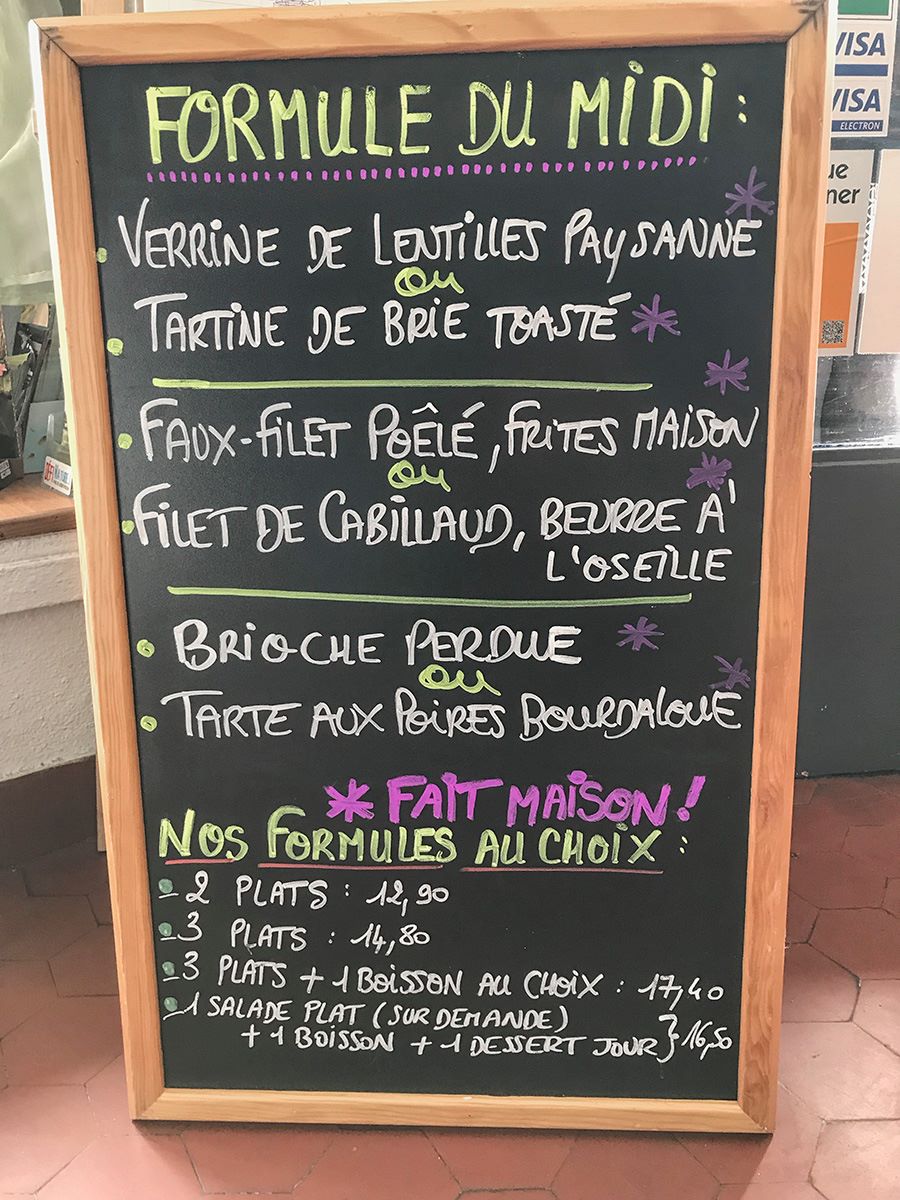 FORMULE DU MIDI :
VERRINE DE LENTILLES PAYSANNE *
ou
TARTINE DE BRIE TOASTÉ *
*
FAUX-FILET POÊLÉ, FRITES MAISON
ou *
FILET DE CABILLAUD, BEURRE À
L'OSEILLE
BRIOCHE PERDUE *
ou *
TARTE AUX POIRES BOURDALOUE
* FAIT MAISON !
NOS FORMULES AU CHOIX :
- 2 PLATS : 12,90
- 3 PLATS : 14,80
- 3 PLATS + 1 BOISSON AU CHOIX : 17,40
- 1 SALADE PLAT (SUR DEMANDE)
+ 1 BOISSON + 1 DESSERT JOUR } 16,50
VISA
VISA
ELECTRON
ue
ner